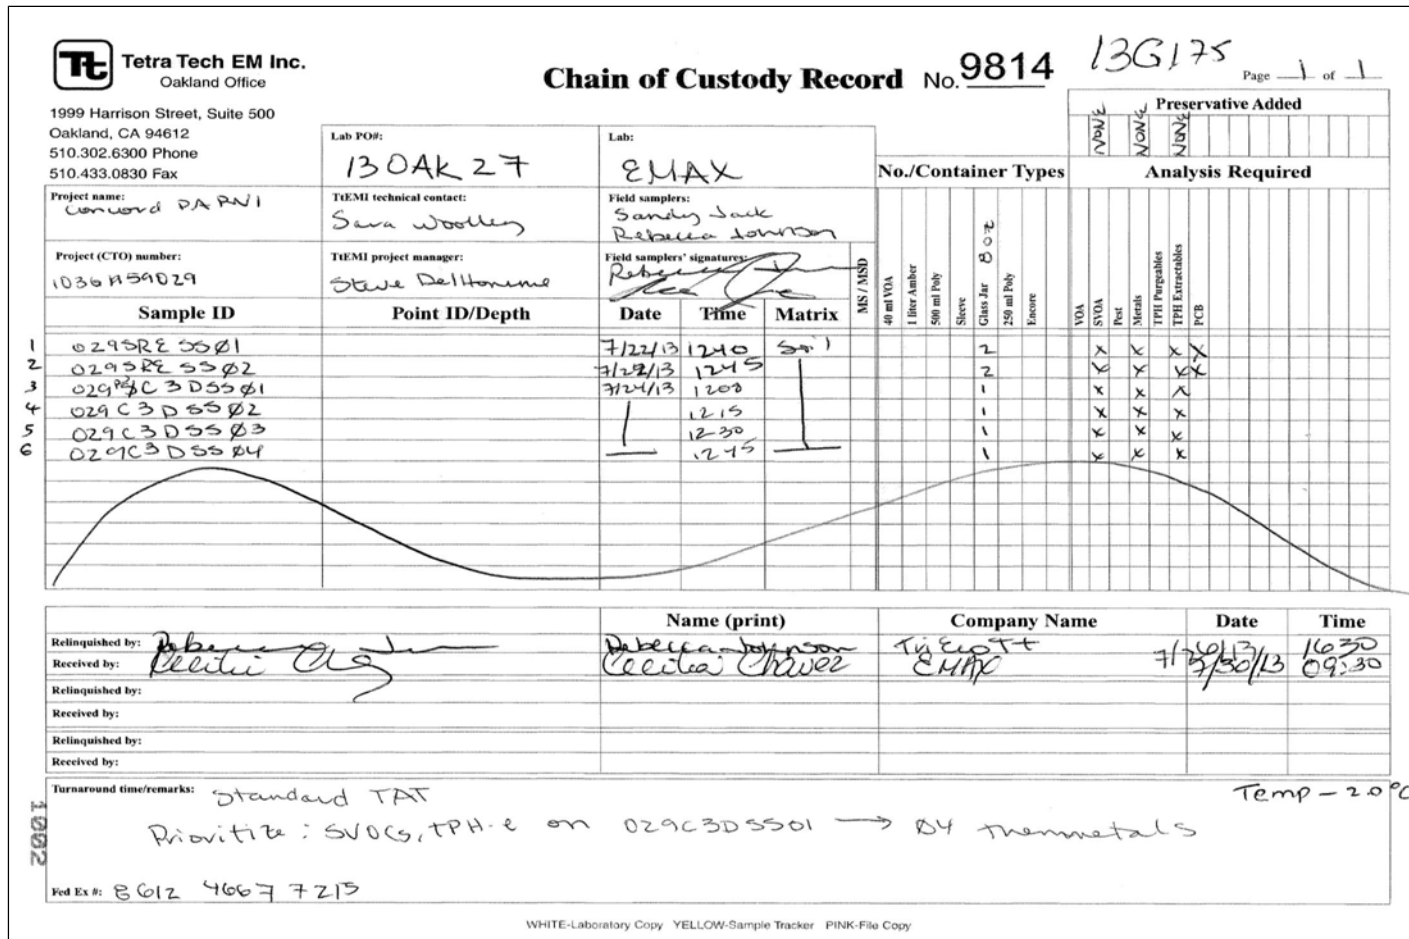 Tt Tetra Tech EM Inc.
Oakland Office
1999 Harrison Street, Suite 500
Oakland, CA 94612
510.302.6300 Phone
510.433.0830 Fax
Chain of Custody Record No. 9814
13G175
Page 1 of 1
Preservative Added
NONE NONE NONE
Lab PO#:
13OAK27
Lab:
EMAX
No./Container Types
Analysis Required
Project name:
Concord
TtEMI technical contact:
Sara Woolley
Field samplers:
Sandy Jack
Rebecca Johnson
Project (CTO) number:
TtEMI project manager:
Steve
Field samplers' signatures:
MS / MSD
40 ml VOA
1 liter Amber
500 ml Poly
Sleeve
Glass Jar 8oz
250 ml Poly
Encore
VOA
SVOA
Pest
Metals
TPH Purgeables
TPH Extractables
PCB
Sample ID Point ID/Depth Date Time Matrix
1 029SRESSØ1 7/22/13 1240 Soil 2 X X X X
2 029SRESSØ2 7/22/13 1245 2 X X X X
3 C3DSSØ1 7/24/13 1200 1 X X X
4 029C3DSSØ2 1215 1 X X X
5 029C3DSSØ3 1230 1 X X X
6 029C3DSSØ4 1245 1 X X X
Name (print) Company Name Date Time
Relinquished by: Rebecca Johnson 1630
Received by: Cecilia Chavez EMAX 7/30/13 09:30
Relinquished by:
Received by:
Relinquished by:
Received by:
Turnaround time/remarks: Standard TAT
Temp - 2.0°C
Prioritize: SVOCs, TPH-e on 029C3DSS01 → Ø4 then metals
1002
Fed Ex #: 8612 4667 7215
WHITE-Laboratory Copy YELLOW-Sample Tracker PINK-File Copy